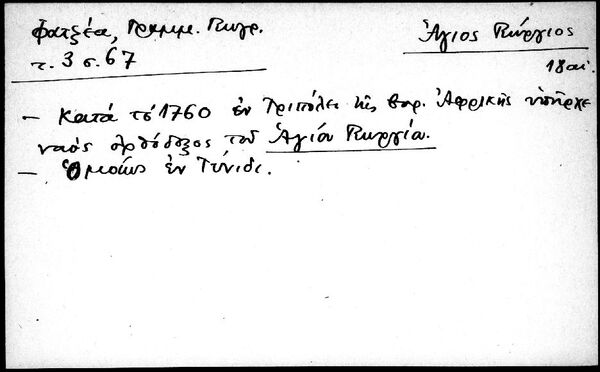 Φατζέα, Γραμμ. Γεωγρ.
τ. 3 σ. 67
Ἅγιος Γεώργιος
18 αἰ.
— Κατά τό 1760 ἐν Τριπόλει τῆς βορ. Ἀφρικῆς ὑπῆρχε
ναός ὀρθόδοξος τοῦ Ἁγίου Γεωργίου.
— Ὁμοίως ἐν Τύνιδι.